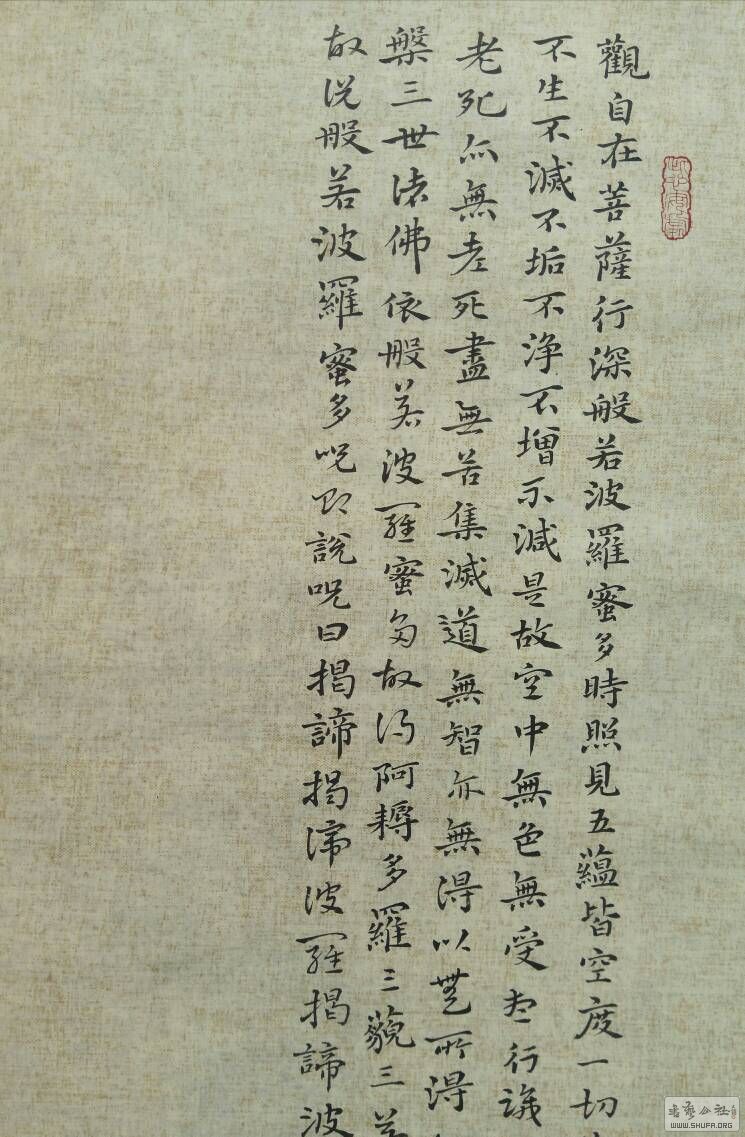 觀自在菩薩行深般若波羅蜜多時照見五蘊皆空度一切
不生不滅不垢不浄不增不減是故空中無色無受想行識
老死亦無老死盡無苦集滅道無智亦無得以無所得
槃三世諸佛依般若波羅蜜多故得阿耨多羅三藐三菩
故说般若波羅蜜多呪即說呪曰揭諦揭諦波羅揭諦波
書藝公社
WWW.SHUFA.ORG